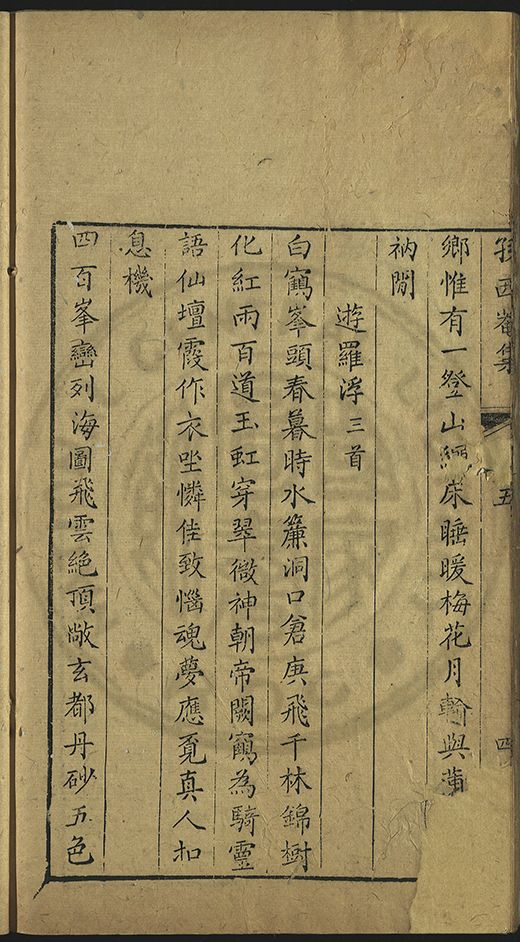 孫西菴集 五 四
鄉惟有一登山繩床睡暖梅花月輸與蒲
衲閒
遊羅浮三首
白鶴峯頭春暮時水簾洞口倉庚飛千林錦樹
化紅雨百道玉虹穿翠微神朝帝闕鶴為騎靈
語仙壇霞作衣坐憐佳致惱魂夢應覓真人扣
息機
四百峯巒列海圖飛雲絶頂敞玄都丹砂五色